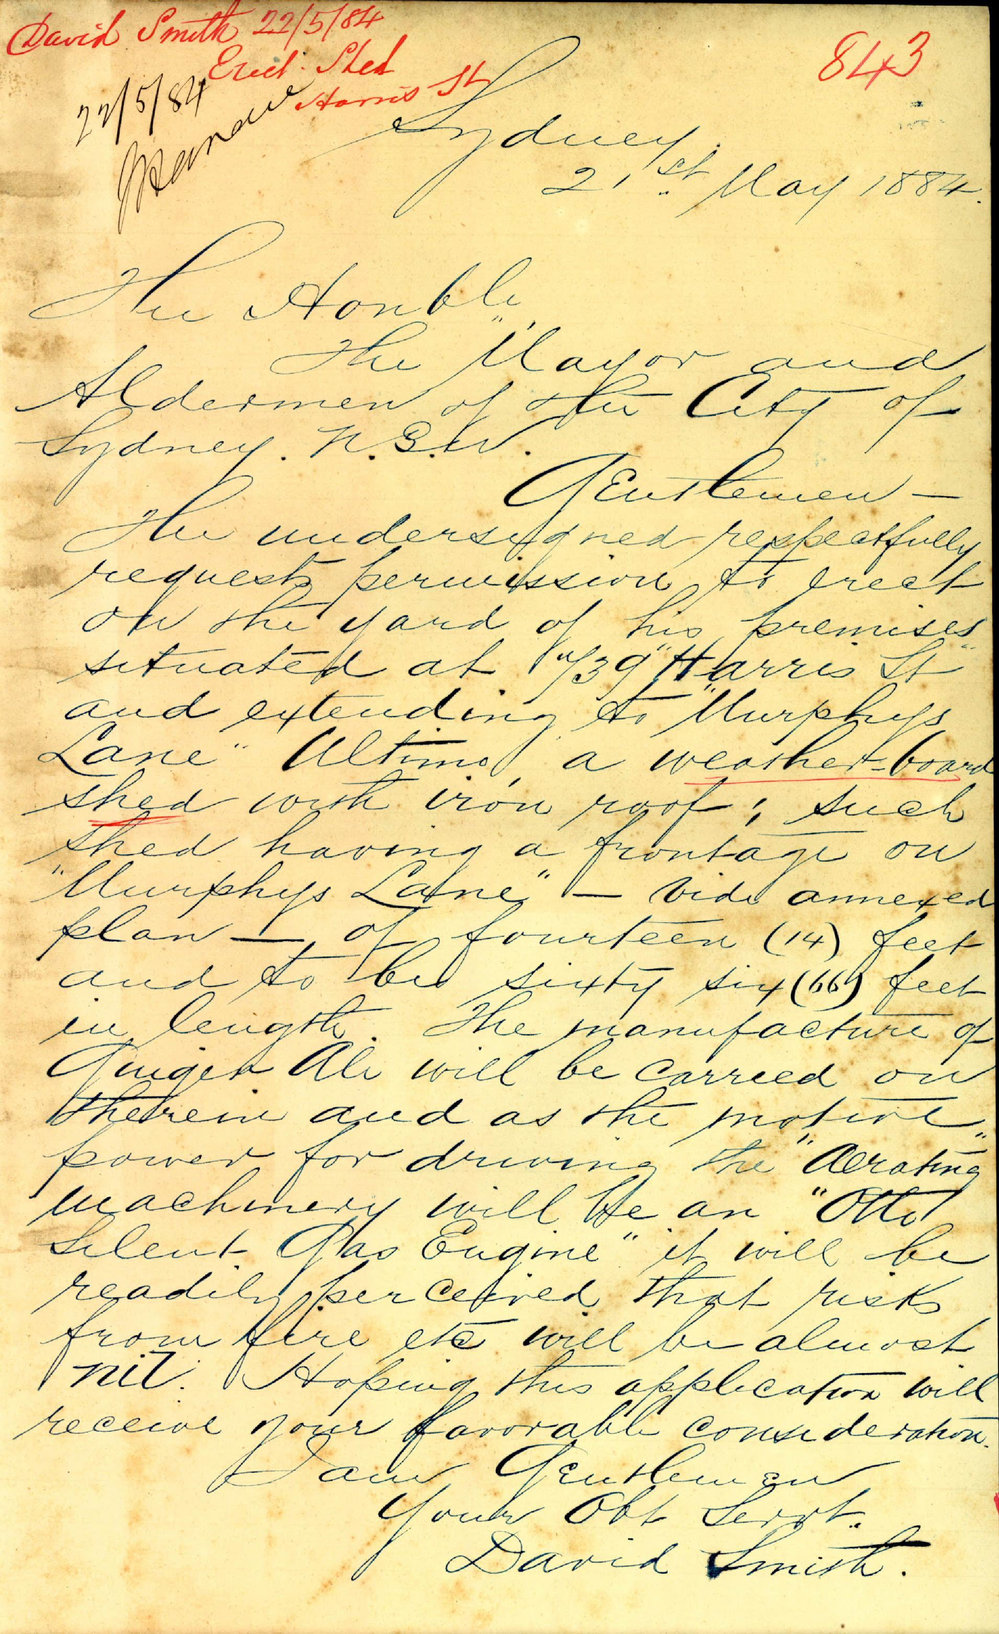 David Smith 22/5/84
Erect Shed
Harris St
843
22/5/84
Sydney.
21st. May 1884.
The Honble,
The "Mayor and
Aldermen of the City of
Sydney. N.S.W.
Gentlemen —
The undersigned respectfully
requests permission to erect
on the yard of his premises
situated at "739" "Harris St"
and extending to "Murphys
Lane" Ultimo, a weather-board
shed with iron roof; such
shed having a frontage on
"Murphys Lane" — vide annexed
plan — of fourteen (14) feet
and to be sixty six (66) feet
in length. The manufacture of
Ginger Ale will be carried on
therein and as the motive
power for driving the "Aerating"
machinery will be an "Otto
Silent Gas Engine" it will be
readily perceived that risks
from fire etc will be almost
nil. Hoping this application will
receive your favorable consideration.
I am Gentlemen
Your Obt Servt.
David Smith.